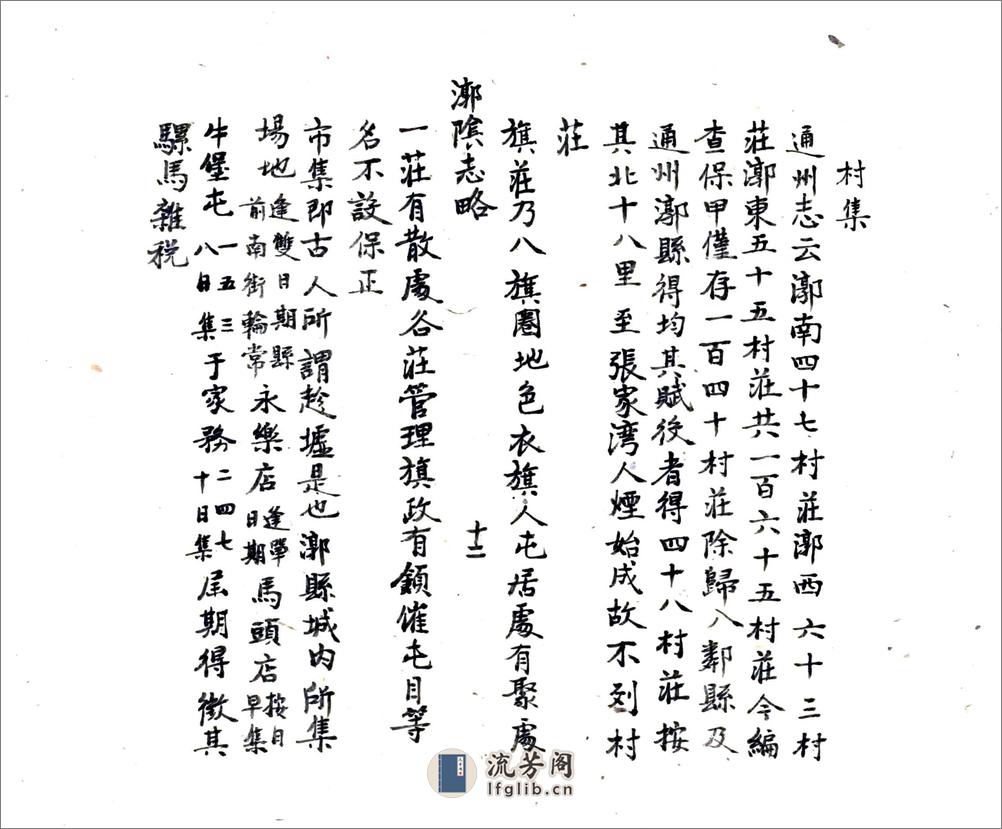 村集
通州志云漷南四十七村莊漷西六十三村
莊漷東五十五村莊共一百六十五村莊今編
查保甲僅存一百四十村莊除歸入鄰縣及
通州漷縣得均其賦役者得四十八村莊按
其北十八里至張家湾人煙始成故不列村
莊
旗莊乃八旗圈地色衣旗人屯居處有聚處
漷陰志略
十二
一莊有散處各莊管理旗政有領催屯目等
名不設保正
市集即古人所謂趁墟是也漷縣城内所集
場地逢雙日期縣前南街輪常永樂店逢單日期馬頭店按日早集
牛堡屯一五三八日集于家務二四七十日集届期得徵其
騾馬雜税
流芳阁
lfglib.cn